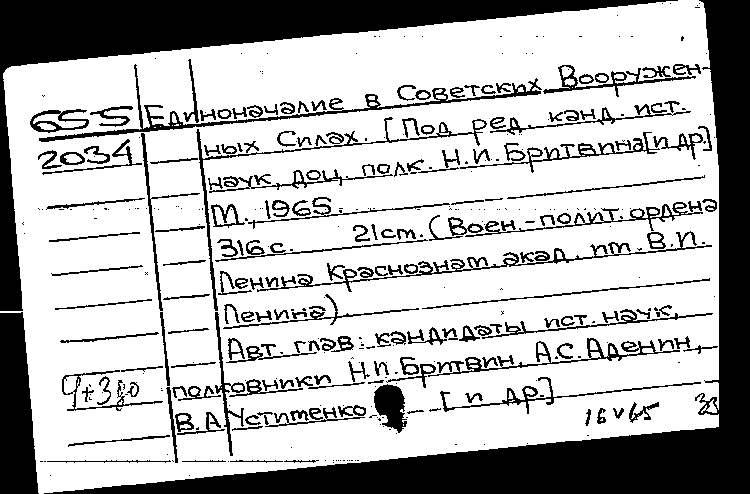 65-5 Единоначалие в Советских Вооружен-
2034 ных Силах. [Под ред. канд. ист.
наук, доц. полк. Н.И. Бритвина [и др]
М., 1965.
316 с. 21 ст. (Воен.-полит. ордена
Ленина Краснознам. акад. им. В.И.
Ленина)
Авт. глав: кандидаты ист. наук,
полковники Н.И. Бритвин, А.С. Аденин,
В.А. Устименко [и др.]
16 V 65